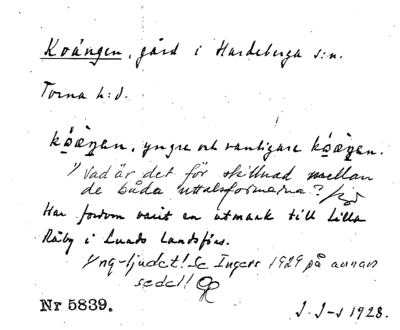 Koängen, gård i Hardeberga s:n.
Torna h:d.
kóàŋan, yngre och vanligare kóàŋan.
Vad är det för skillnad mellan
de båda uttalsformerna?
Har fordom varit en utmark till Lilla
Råby i Lunds landsförs.
Yng-ljudet! Se Ingers 1929 på annan
sedel!
Nr 5839.
J. J-s 1928.